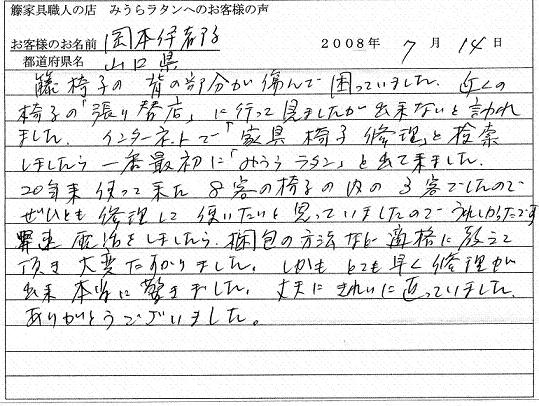 籐家具職人の店　みうらラタンへのお客様の声
お客様のお名前 岡本伊都子 2008年 7月 14日
都道府県名 山口県
籐椅子の背の部分が傷んで困っていました。近くの
椅子の「張り替店」に行って見ましたが出来ないと言われ
ました。インターネットで「家具 椅子 修理」と検索
しましたら一番最初に「みうらラタン」と出て来ました。
20年来使って来た8客の椅子の内の3客でしたので
ぜひとも修理して使いたいと思っていましたのでうれしかったです
早速電話をしましたら、梱包の方法など適格に教えて
頂き大変たすかりました。しかもとても早く修理が
出来本当に驚きました。丈夫にきれいに直っていました。
ありがとうございました。